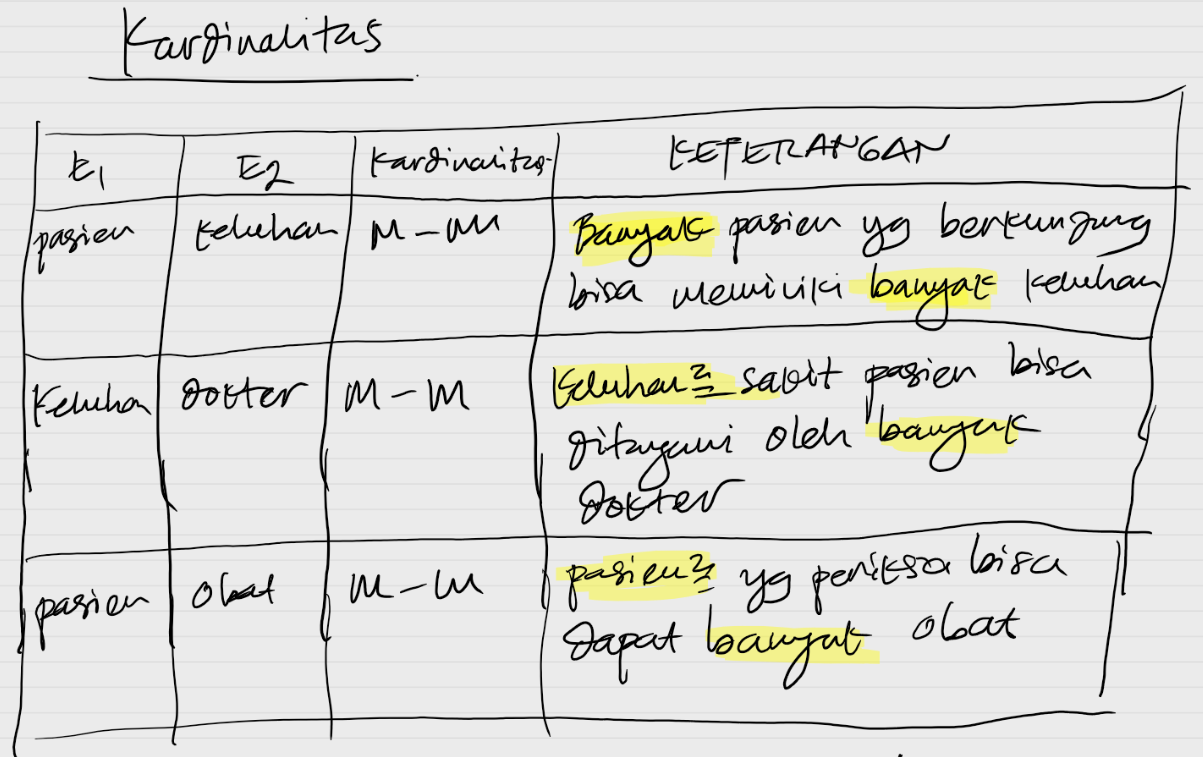 Kardinalitas
E1 E2 Kardinalitas KETERANGAN
pasien keluhan M - M Banyak pasien yg berkunjung
bisa memiliki banyak keluhan
Keluhan dokter M - M Keluhan2 sakit pasien bisa
ditangani oleh banyak
dokter
pasien obat M - M pasien2 yg periksa bisa
dapat banyak obat